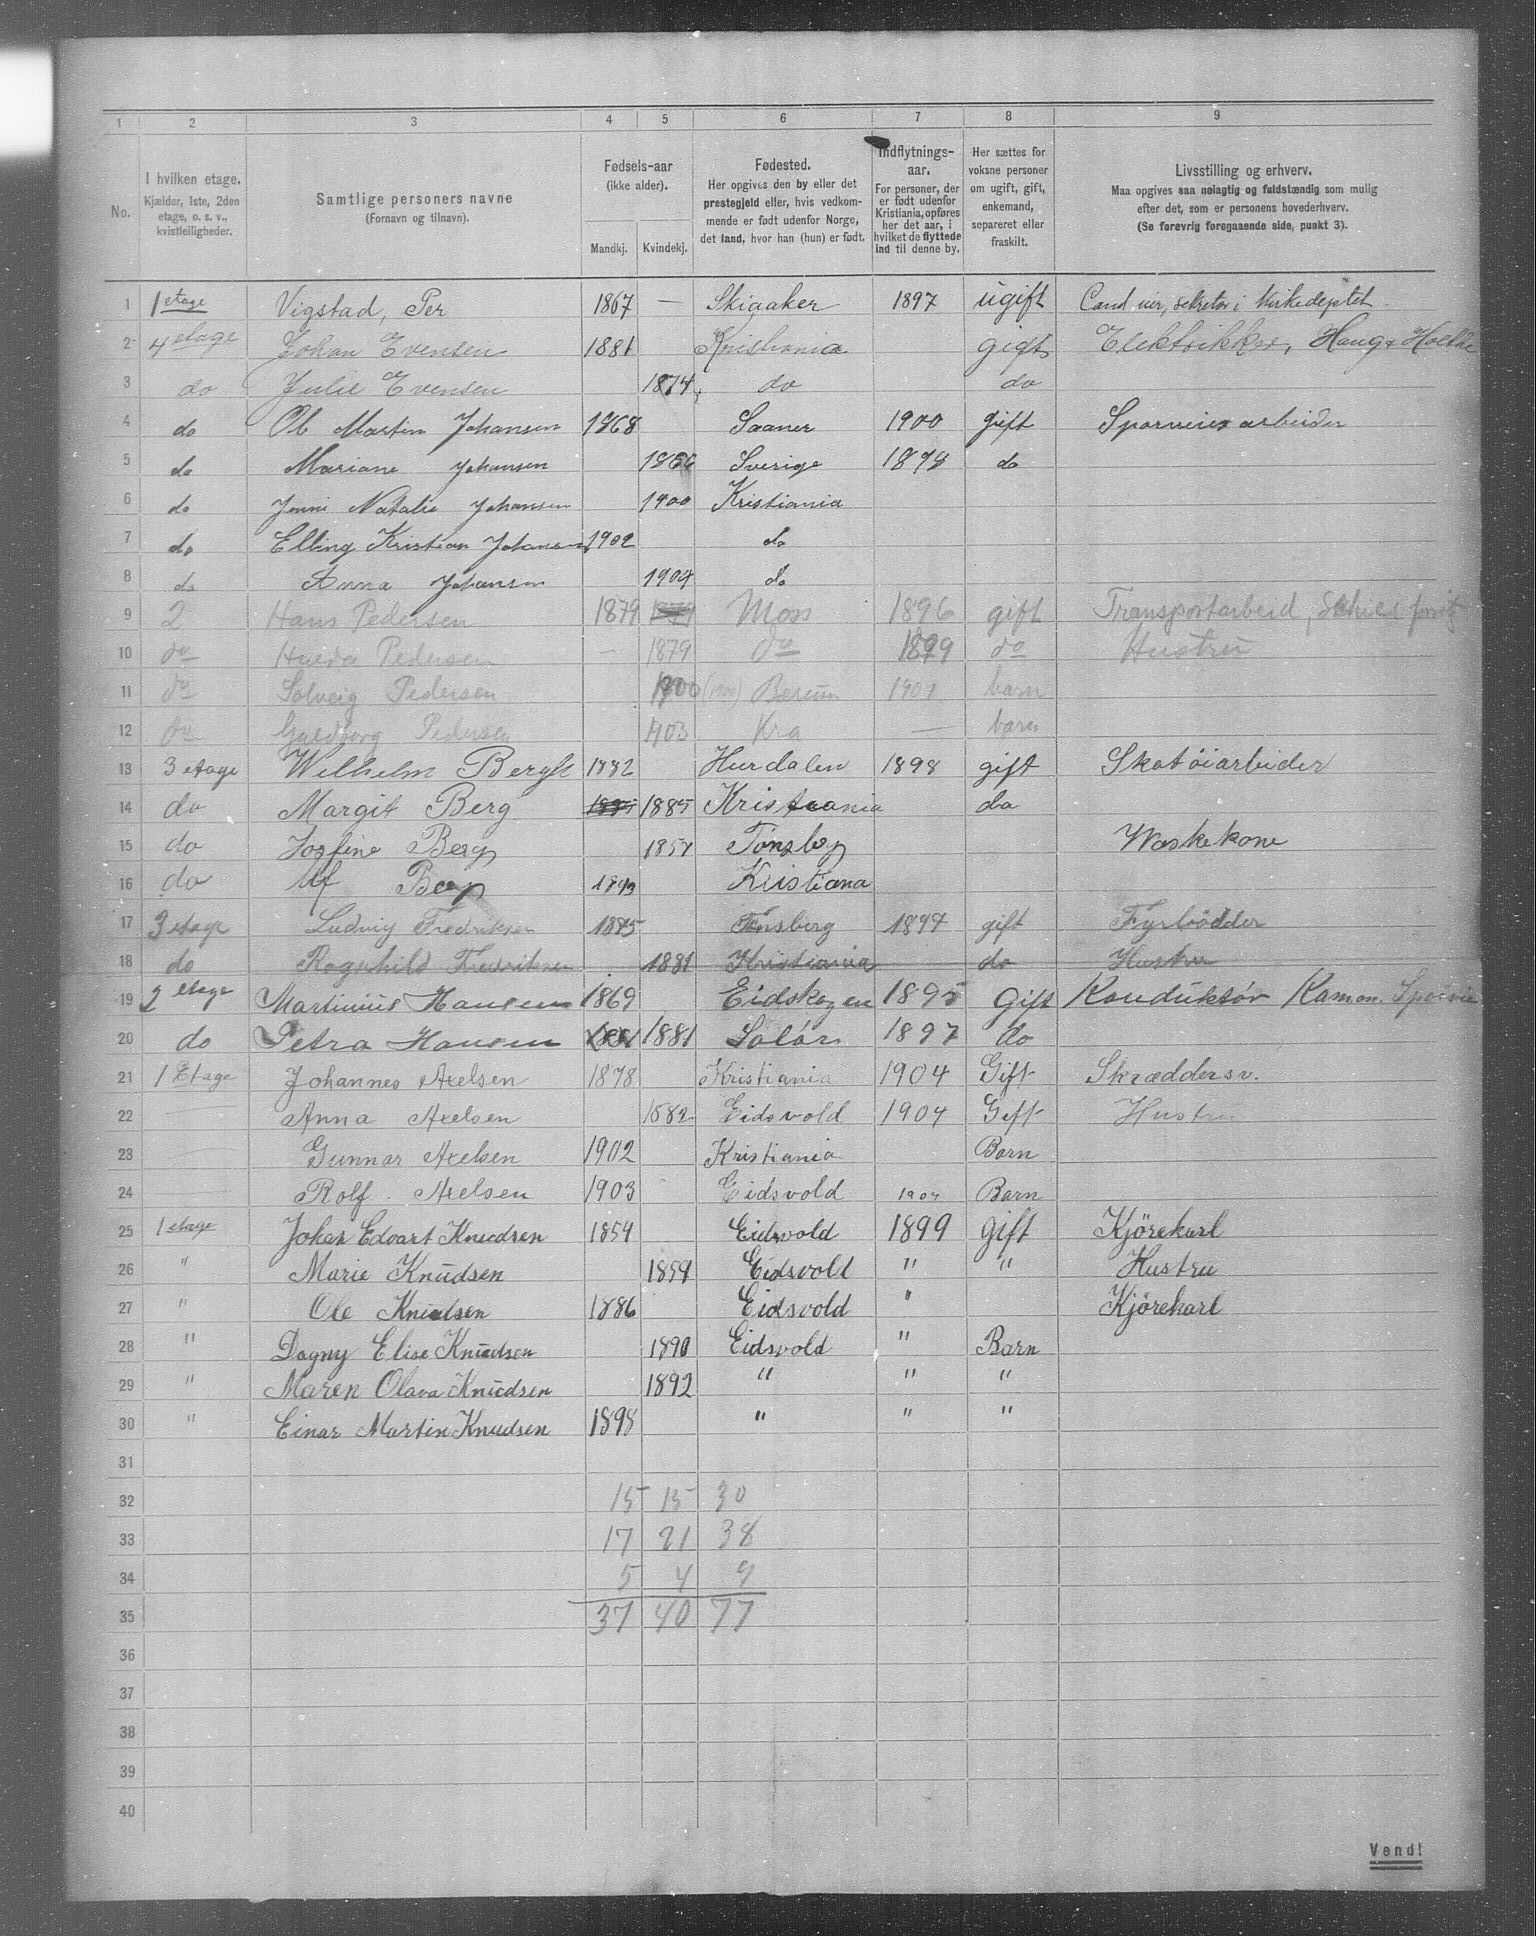 1 2 3 4 5 6 7 8 9
No.
I hvilken etage.
Kjælder, 1ste, 2den
etage, o. s. v.,
kvistleiligheder.
Samtlige personers navne
(Fornavn og tilnavn).
Fødsels-aar
(ikke alder).
Mandkj. Kvindekj.
Fødested.
Her opgives den by eller det
prestegjeld eller, hvis vedkom-
mende er født udenfor Norge,
det land, hvor han (hun) er født.
Indflytnings-
aar.
For personer, der
er født udenfor
Kristiania, opføres
her det aar, i
hvilket de flyttede
ind til denne by.
Her sættes for
voksne personer
om ugift, gift,
enkemand,
separeret eller
fraskilt.
Livsstilling og erhverv.
Maa opgives saa nøiagtig og fuldstændig som mulig
efter det, som er personens hovederhverv.
(Se forøvrig foregaaende side, punkt 3).
1 1 etage Vigstad, Per 1867 — Skiaaker 1897 ugift Cand. , sekretær i Kirkedeptet
2 4 etage Johan Evensen 1881 Kristiania gift Elektrikker, Haug & Holthe
3 do Julie Evensen 1874 do do
4 do Ole Martin Johansen 1868 Saaner 1900 gift Sporveis arbeider
5 do Mariane Johansen Sverige 1898 do
6 do Jenni Natalie Johansen 1900 Kristiania
7 do Elling Kristian Johansen 1902 do
8 do Anna Johansen 1904 do
9 2 Hans Pedersen 1879 Moss 1896 gift Transportarbeid,
10 do Hulda Pedersen — 1879 do 1899 do Hustru
11 do Solveig Pedersen 1900 (1900) Berum 1901 barn
12 do Guldborg Pedersen 903 Kra — barn
13 3 etage Wilhelm Berg 1882 Hurdalen 1898 gift Skotøiarbeider
14 do Margit Berg 1885 Kristiania do
15 do Josfine Berg 1857 Tønsberg Waskekone
16 do Berg Kristiana
17 3 etage Ludvig Fredriksen 1875 Tønsberg 1897 gift Fyrbødder
18 do Ragnhild Fredriksen 1881 Kristiania do Hustru
19 2 etage Martinius Hansen 1869 Eidskogen 1895 Gift Konduktør Kamon. Sporvei
20 do Petra Hansen 1881 Solør 1897 do
21 1 Etage Johannes Axelsen 1878 Kristiania 1904 Gift Skræddersv.
22 Anna Axelsen 1882 Eidsvold 1904 Gift Hustru
23 Gunnar Axelsen 1902 Kristiania Barn
24 Rolf Axelsen 1903 Eidsvold 1904 Barn
25 1 etage Johan Edvart Knudsen 1854 Eidsvold 1899 gift Kjörekarl
26 " Marie Knudsen 1859 Eidsvold " " Hustru
27 " Ole Knudsen 1886 Eidsvold " Kjörekarl
28 " Dagny Elise Knudsen 1890 Eidsvold " Barn
29 " Maren Olava Knudsen 1892 " " "
30 " Einar Martin Knudsen 1898 " " "
31
32 15 15 30
33 17 21 38
34 5 4 9
35 37 40 77
36
37
38
39
40
Vend!